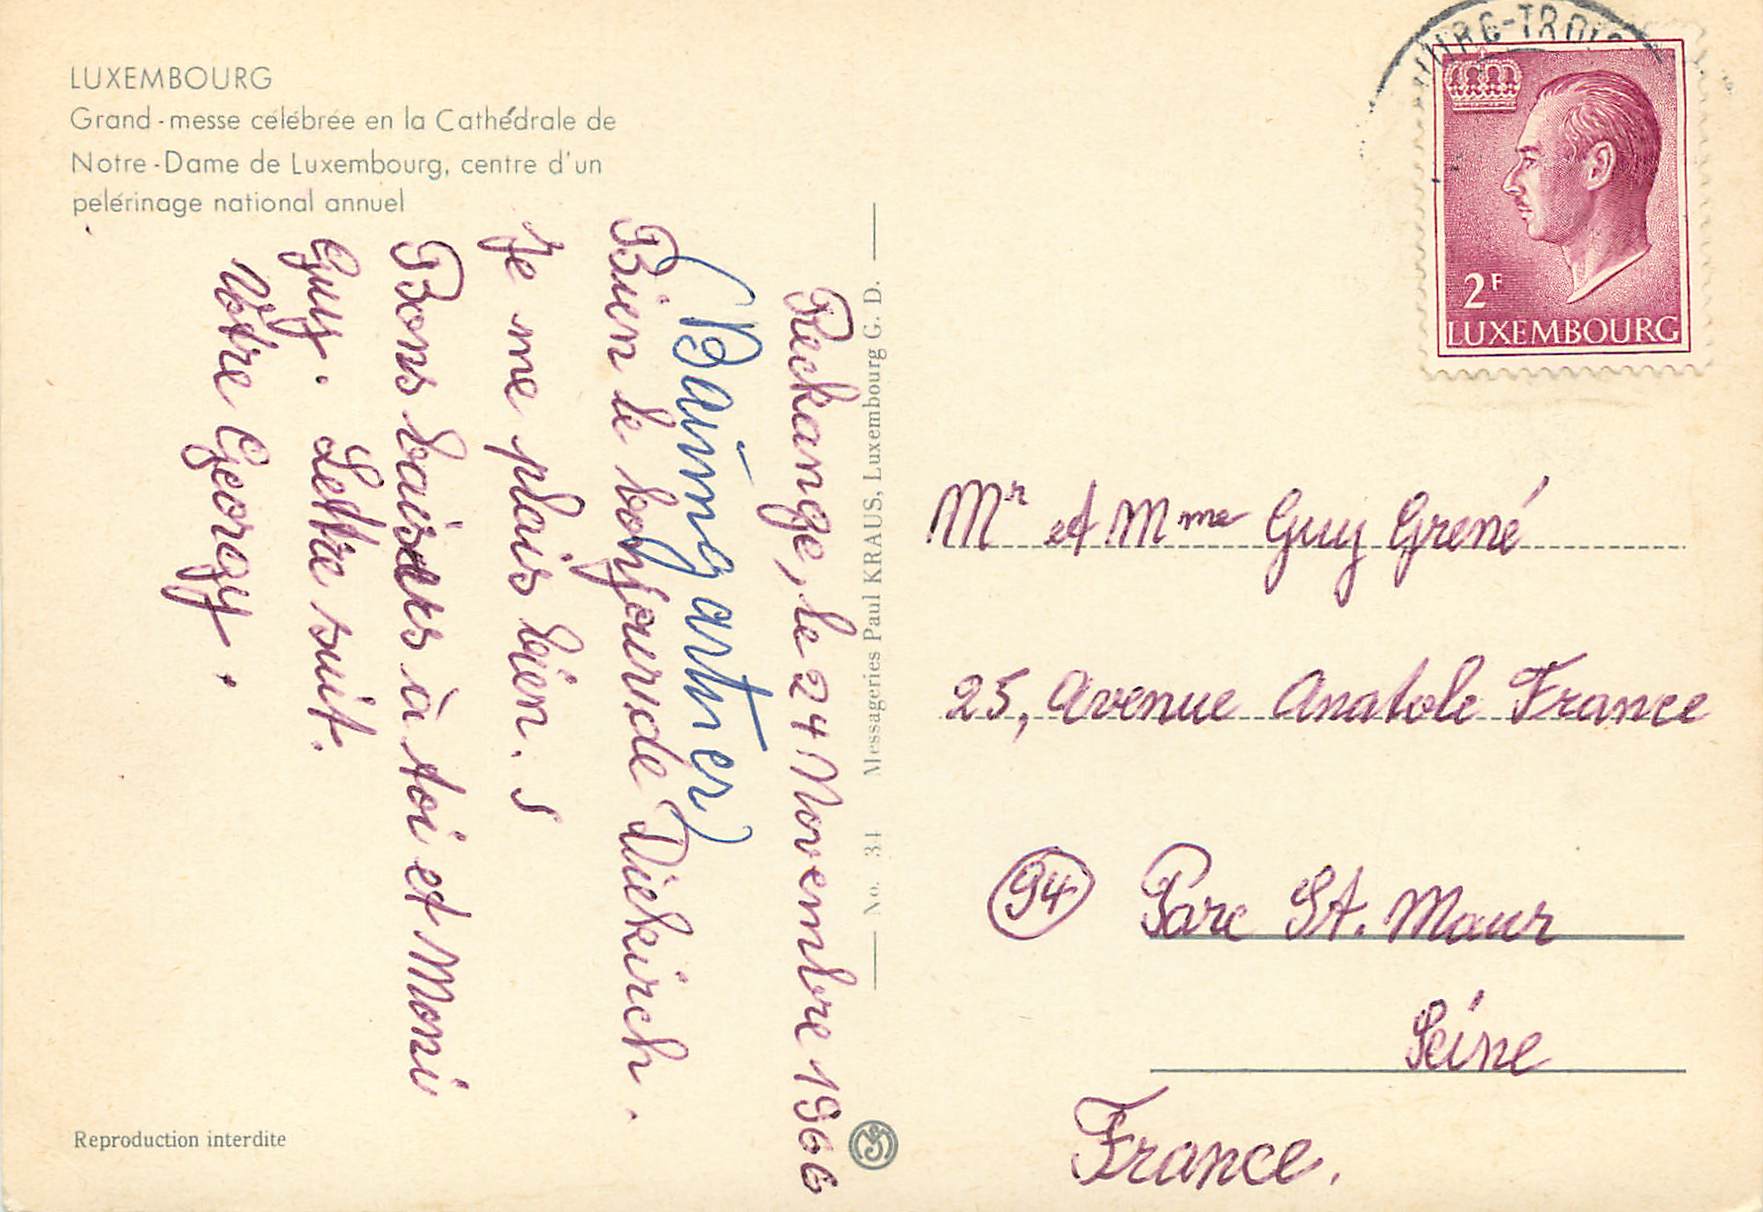 LUXEMBOURG
Grand-messe célébrée en la Cathédrale de
Notre-Dame de Luxembourg, centre d'un
pelérinage national annuel
Reckange, le 24 Novembre 1966
(Baumgartner)
Bien le bonjour de Diekirch.
Je me plais bien.
Bons baisers à toi et Moni
Guy. Lettre suit.
Vôtre Georgy.
Reproduction interdite
No. 34 Messageries Paul KRAUS, Luxembourg G. D.
URG-TROIS
2F
LUXEMBOURG
Mr et Mme Guy Grené
25, Avenue Anatole France
94 Parc St. Maur
Seine
France.